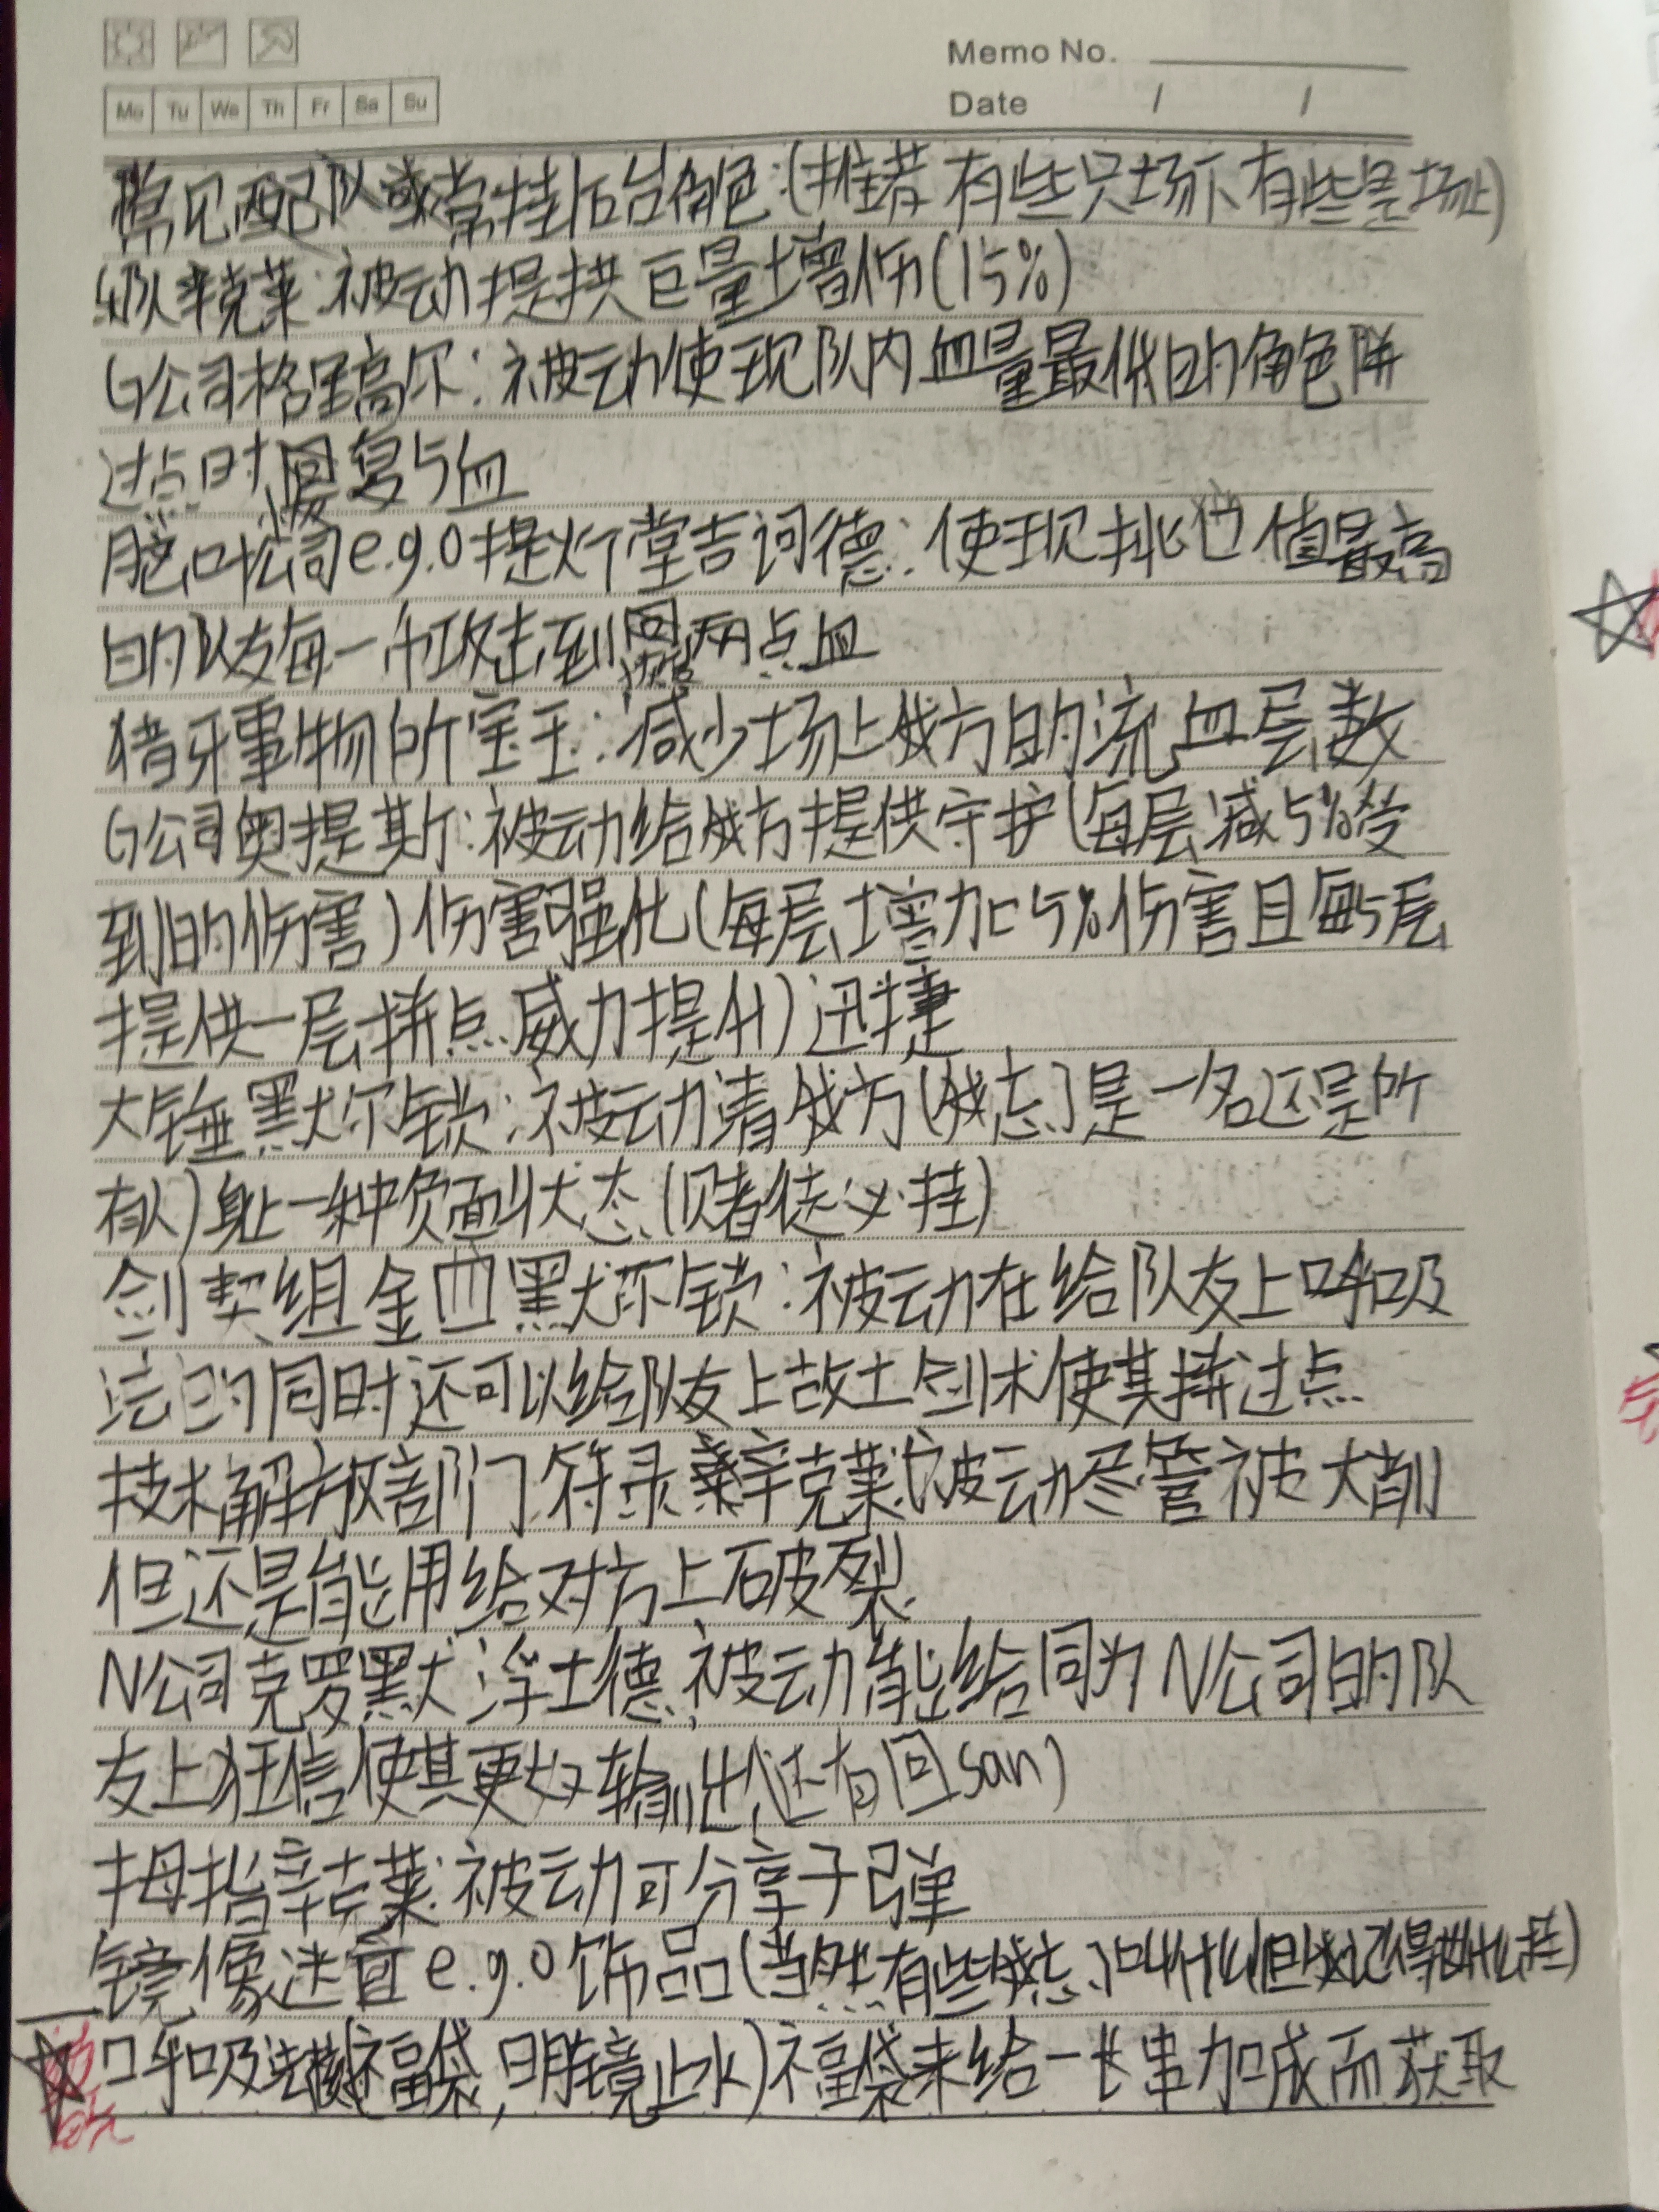 Memo No.
Date / /
Mo Tu We Th Fr Sa Su
常见配队或常挂后台角色:(推荐 有些只场下有些是场上)
辛克莱:被动提拱巨量增伤(15%)
G公司格里高尔:被动使现队内血量最低的角色拼
过点时回复5血
脑叶公司e.g.o提灯堂吉诃德:使现挑 值最高
的队友每一次攻击到回两点血
猎牙事物所宝玉:减少场上我方的流血层数
G公司奥提斯:被动给我方提供守护(每层减5%受
到的伤害)伤害强化(每层增加5%伤害且每5层
提供一层拼点威力提升)迅捷
大锤默尔锁:被动清我方(我忘了是一名还是所
有队)身上一种负面状态(赌徒必挂)
剑契组金四默尔锁:被动在给队友上呼吸
法的同时还可以给队友上故土剑术使其拼过点
技术解放部门符录辛克莱:被动尽管被大削
但还是能用给对方上破裂
N公司克罗默浮士德:被动能给同为N公司的队
友上狂信使其更好输出(还有回san)
拇指辛克莱:被动可分享子弹
镜像迷宫e.g.o饰品(当然有些我忘了叫什么但我记得 )
呼吸法(福袋,明镜止水)福袋来给一长串加成而获取